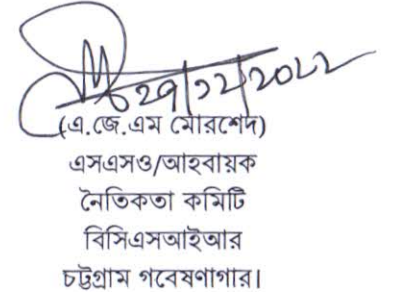 ২৭/১২/২০২২
(এ.জে.এম মোরশেদ)
এসএসও/আহবায়ক
নৈতিকতা কমিটি
বিসিএসআইআর
চট্টগ্রাম গবেষণাগার।